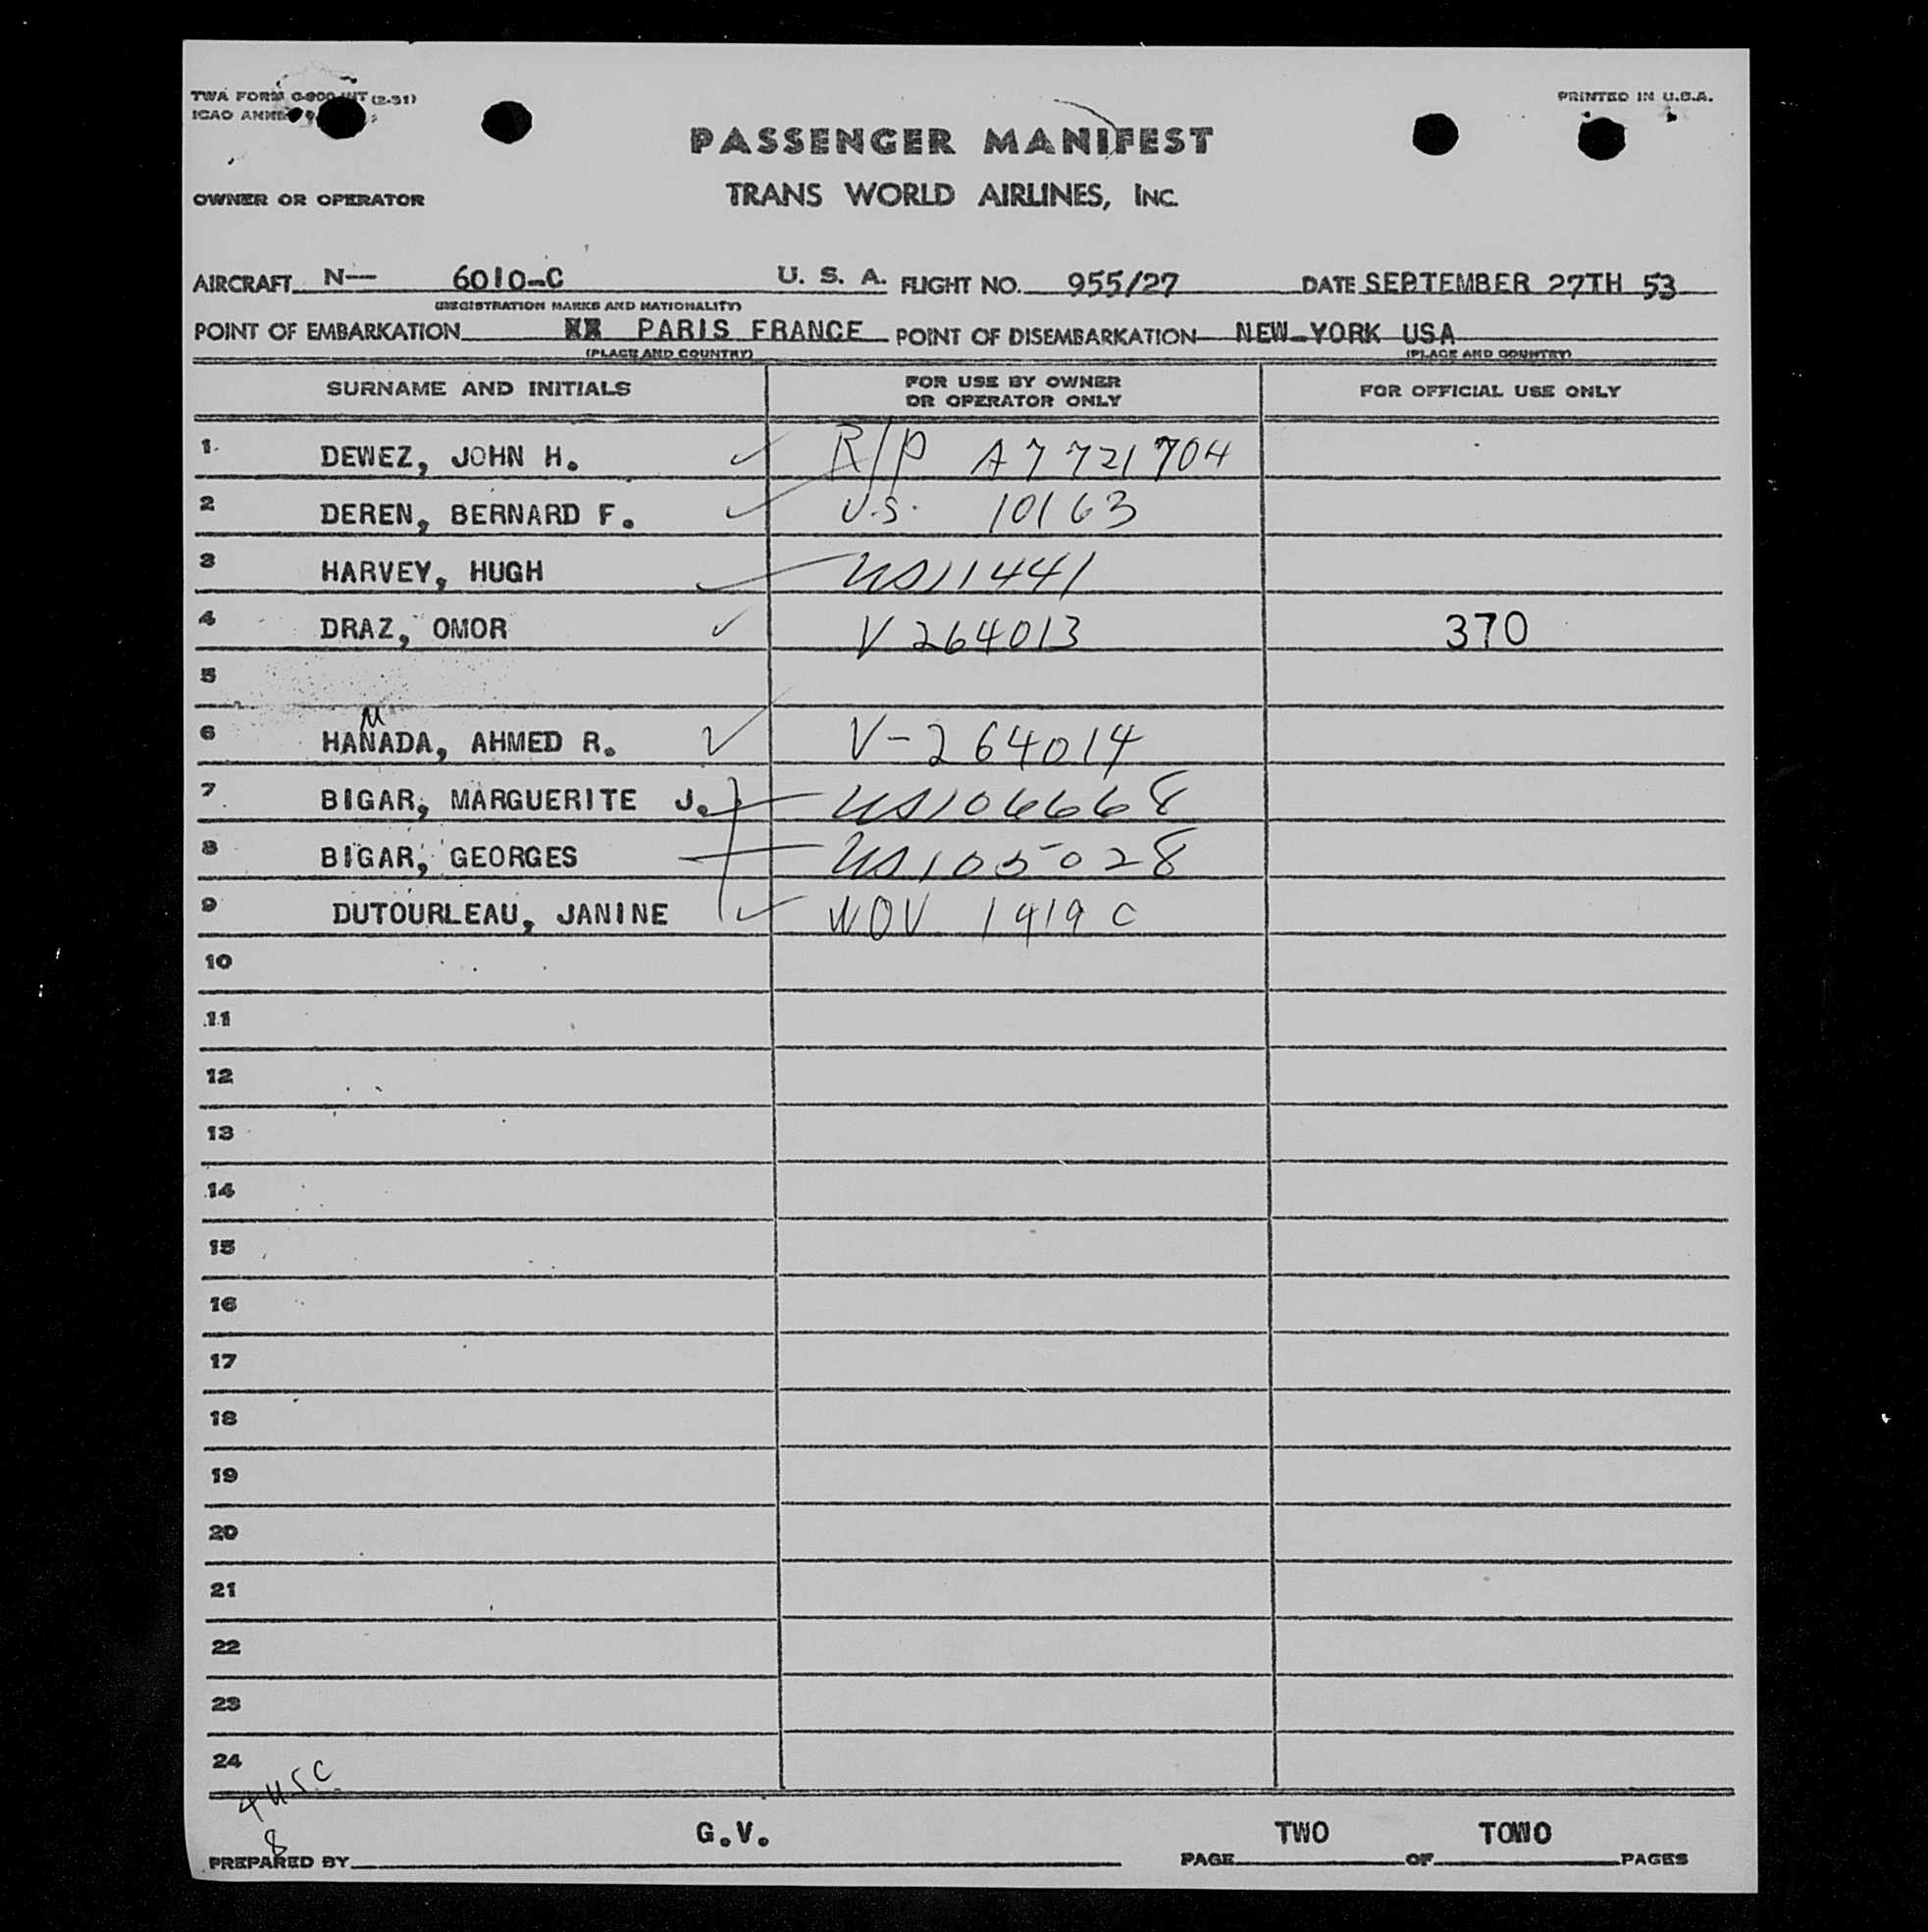 TWA FORM (2-51)
ICAO
PRINTED IN U.S.A.
PASSENGER MANIFEST
OWNER OR OPERATOR
TRANS WORLD AIRLINES, INC.
AIRCRAFT N— 6010-C U. S. A. FLIGHT NO. 955/27 DATE SEPTEMBER 27TH 53
(REGISTRATION MARKS AND NATIONALITY)
POINT OF EMBARKATION PARIS FRANCE POINT OF DISEMBARKATION NEW-YORK USA
(PLACE AND COUNTRY) (PLACE AND COUNTRY)
SURNAME AND INITIALS FOR USE BY OWNER OR OPERATOR ONLY FOR OFFICIAL USE ONLY
1. DEWEZ, JOHN H. R/P A7721704
2 DEREN, BERNARD F. U.S. 10163
3 HARVEY, HUGH US11441
4 DRAZ, OMOR V 264013 370
5
M
6 HANADA, AHMED R. V-264014
7 BIGAR, MARGUERITE J. US106668
8 BIGAR, GEORGES US105028
9 DUTOURLEAU, JANINE WOV 1419 C
10
11
12
13
14
15
16
17
18
19
20
21
22
23
24
4 USC
8
G.V. TWO TOWO
PREPARED BY PAGE OF PAGES